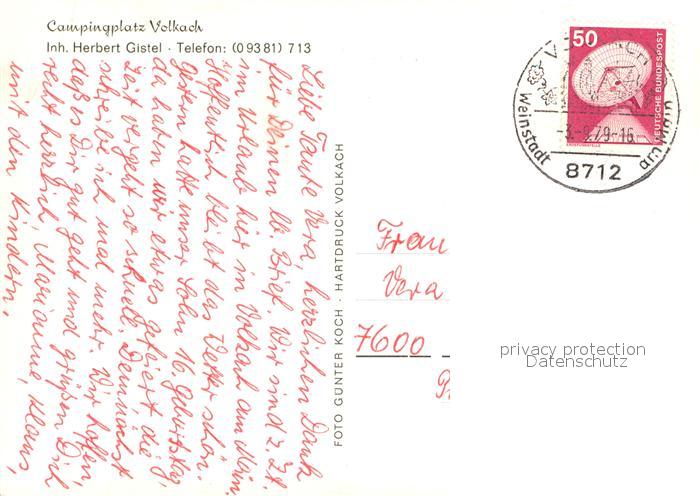 Campingplatz Volkach
Inh. Herbert Gistel · Telefon: (0 93 81) 713
Liebe Tante Vera, herzlichen Dank
für Deinen lb. Brief. Wir sind z. Zt.
im Urlaub hier in Volkach am Main.
Hoffentlich bleibt das Wetter schön.
Gestern hatte unser Sohn 16. Geburtstag,
da haben wir etwas gefeiert die
Zeit vergeht so schnell. Demnächst
schreibe ich mal mehr. Wir hoffen,
daß es Dir gut geht und grüßen Dich
recht herzlich, Marianne, Klaus,
mit den Kindern.
FOTO GUNTER KOCH · HARTDRUCK VOLKACH
50
DEUTSCHE BUNDESPOST
ERDEFUNKSTELLE
VOLKACH
-3.-9.79-16
Weinstadt am Main
8712
Frau
Vera
7600
privacy protection
Datenschutz